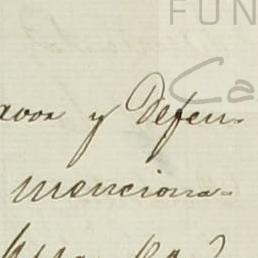 FUN
Ca
avor y Defen-
menciona-